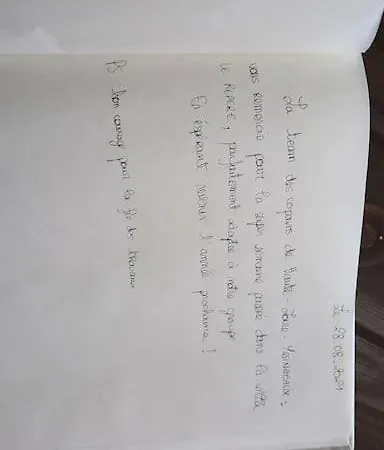 Le 28.08.2021
La team des copains de Haute-Loire. YSSINGEAUX :
vous remercie pour la super semaine passée dans la villa
Le REPERE, parfaitement adaptée à notre groupe
En espérant revenir l'année prochaine !
PS bon courage pour la fin des travaux